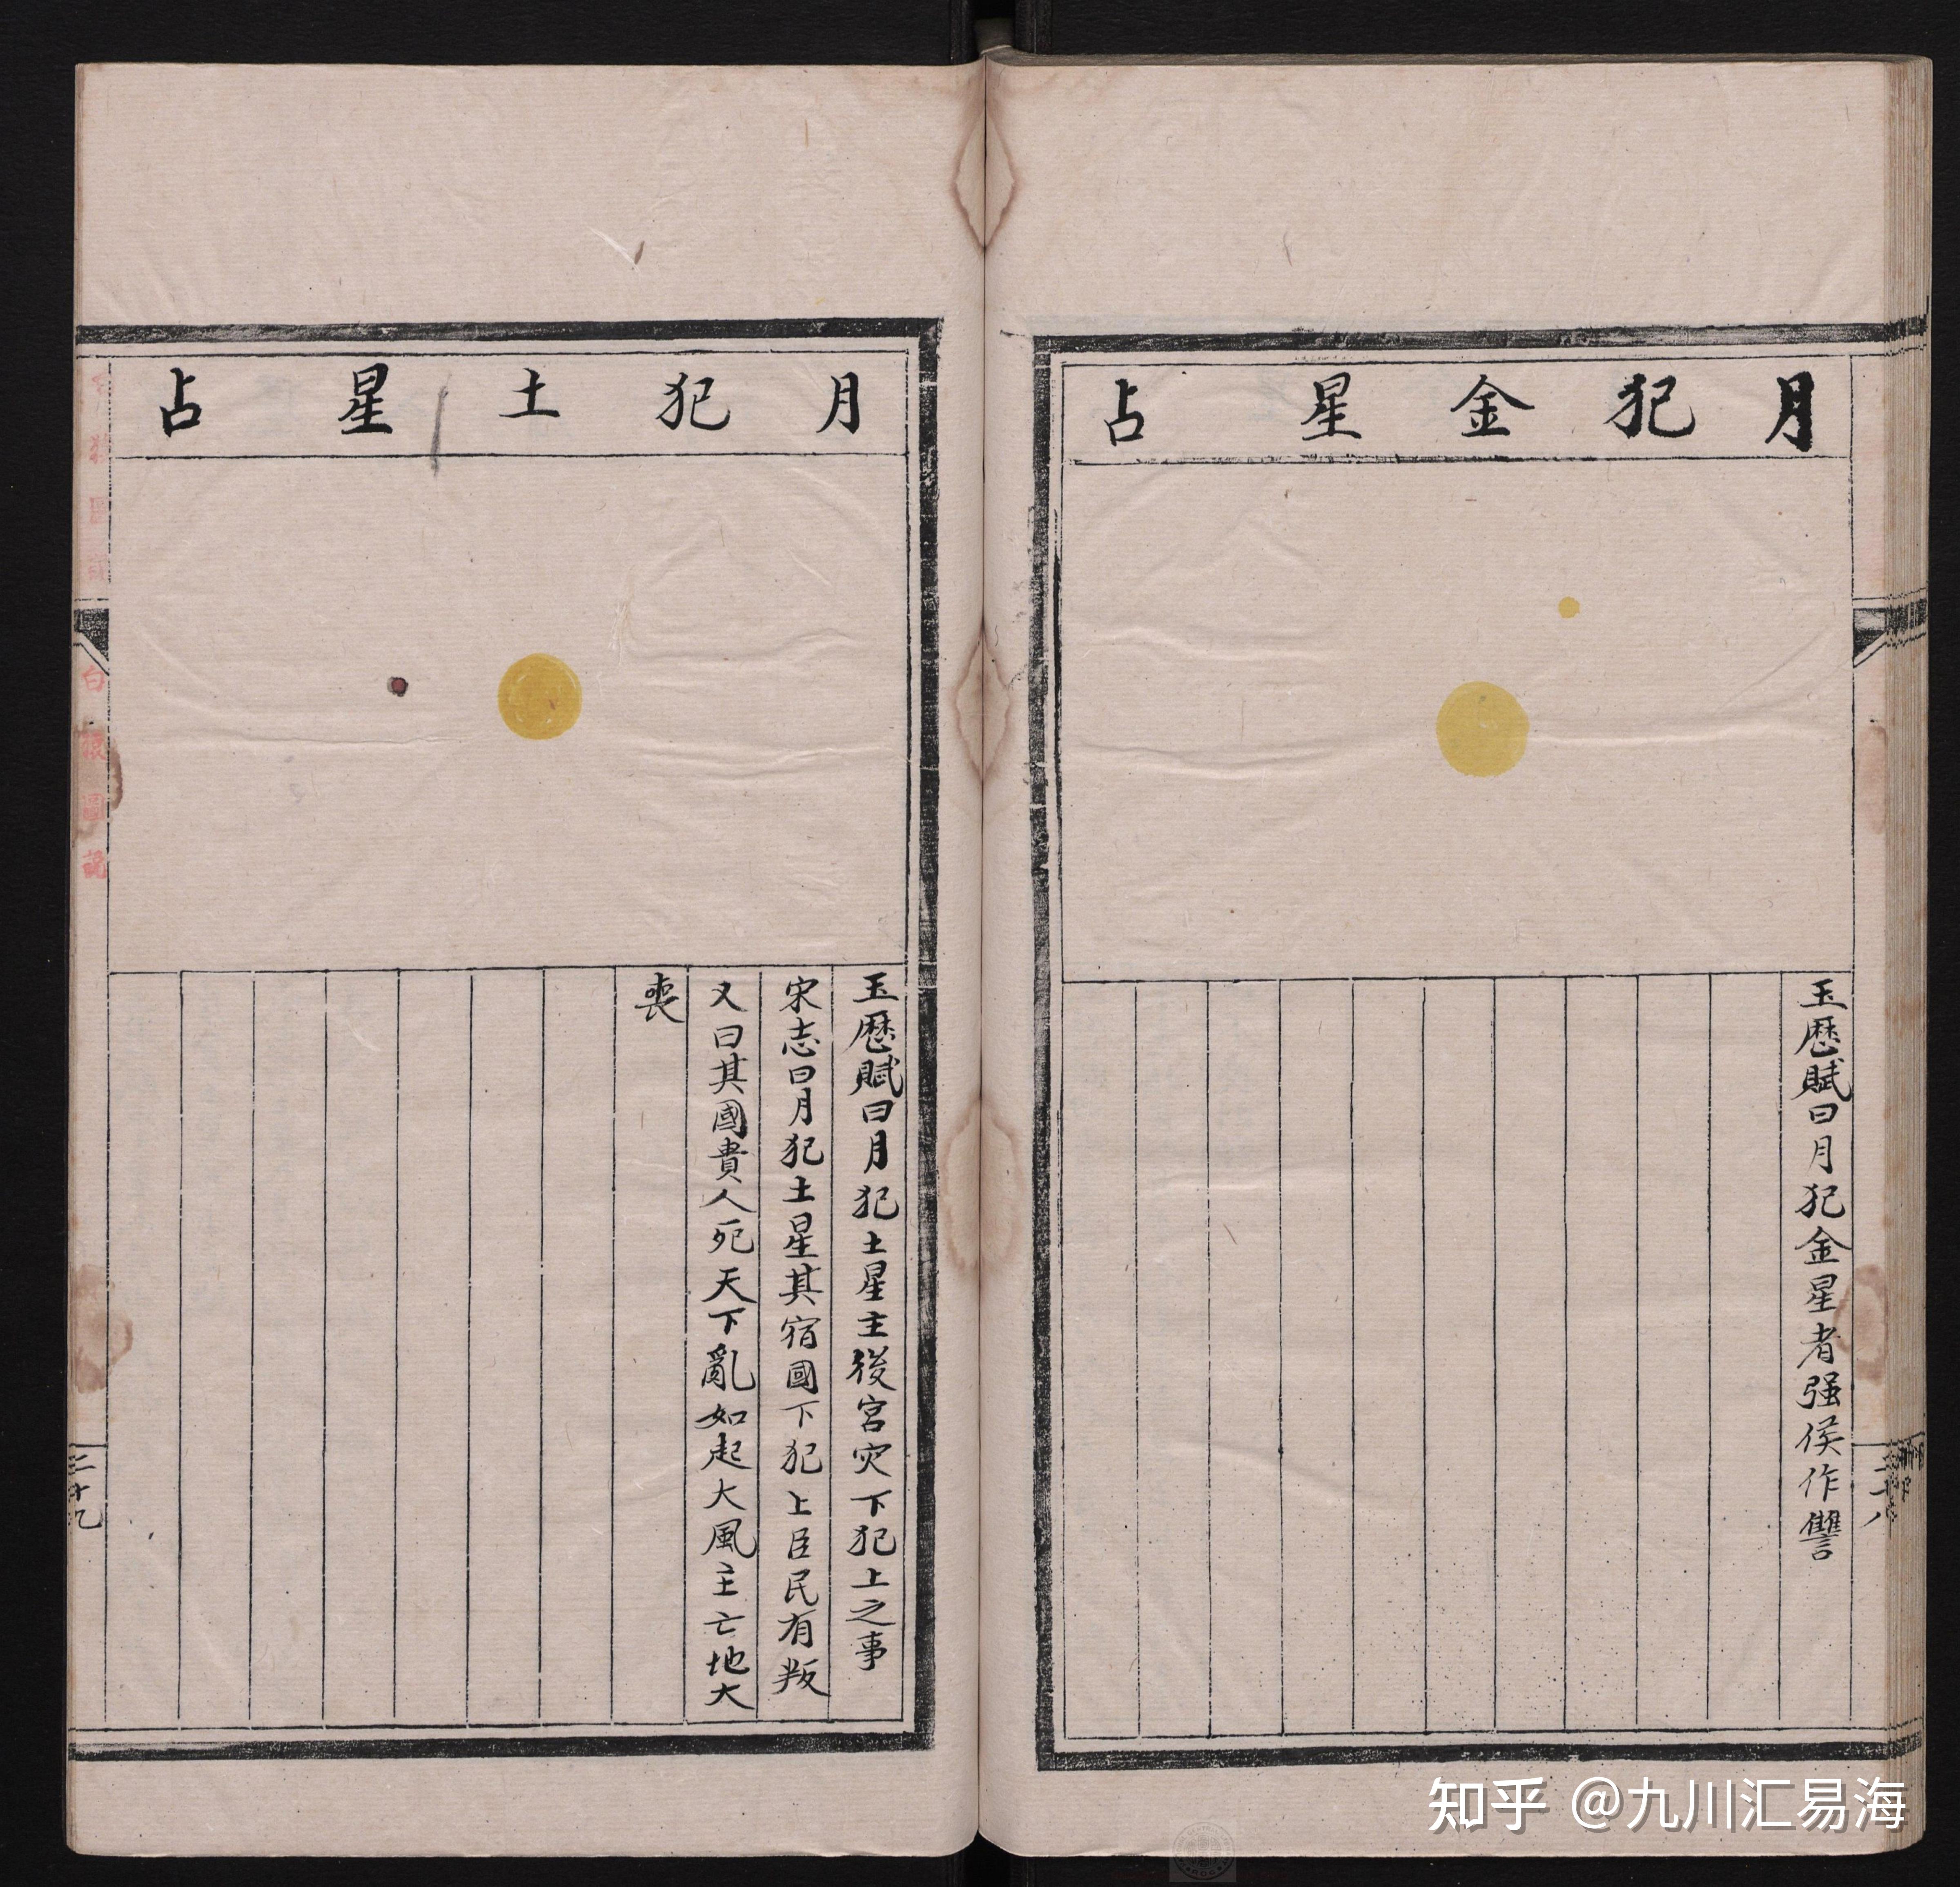 月犯金星占
玉歷賦曰月犯金星者强侯作讐
月犯土星占
玉歷賦曰月犯土星主後宮灾下犯上之事
宋志曰月犯土星其宿國下犯上臣民有叛
又曰其國貴人死天下亂如起大風主亡地大
喪
白猿圖說
二十九
知乎 @九川汇易海